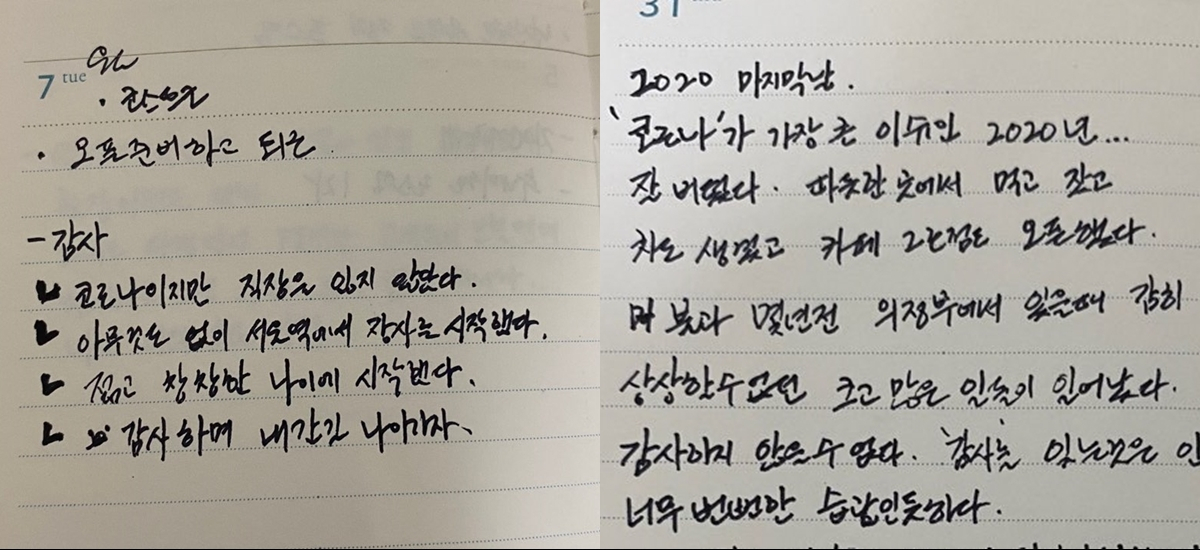 7 tue
· 오픈준비하고 퇴근
- 감사
코로나이지만 직장을 잃지 않았다.
아무것도 없이 서울역에서 장사를 시작했다.
젊고 창창한 나이에 시작한다.
감사하며 내 갈길 나아가자.
31
2020 마지막날.
'코로나'가 가장 큰 이슈인 2020년...
잘 버텼다. 따뜻한 곳에서 먹고 잤고
차도 생겼고 카페 2호점도 오픈했다.
불과 몇년전 의정부에서 있을때 감히
상상할수없던 크고 많은 일들이 일어났다.
감사하지 않을수 없다. '감사'를 잊는것은
너무 뻔뻔한 습관인듯하다.